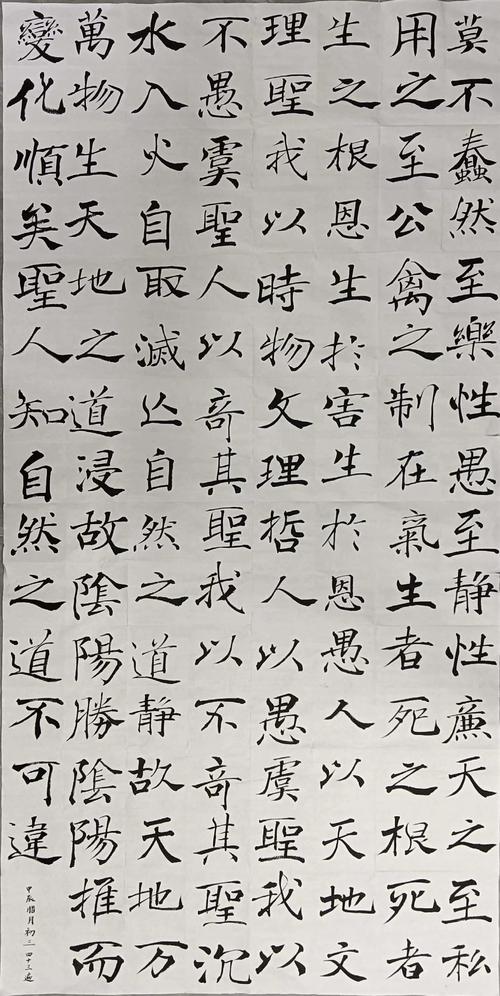 莫不蠢然至樂性愚至静性廉天之至私
用之至公禽之制在氣生者死之根死者
生之根恩生於害生於恩愚人以天地文
理聖我以時物文理哲人以愚虞聖我以
不愚虞聖人以奇其聖我以不奇其聖沉
水入火自取滅亾自然之道静故天地万
萬物生天地之道浸故陰陽勝陰陽推而
變化順矣聖人知自然之道不可違
甲辰腊月初二 四十三遍